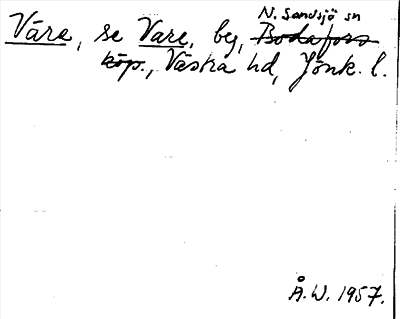 N. Sandsjö sn
Våre, se Vare, by, Bodafors
köp., Västra hd, Jönk. l.
Å.W. 1957.